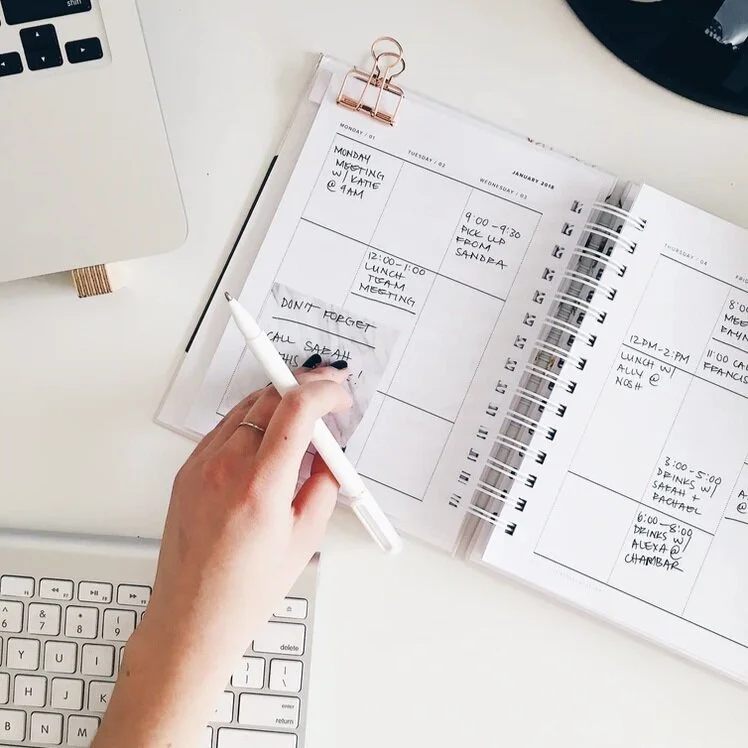 MONDAY / 01
TUESDAY / 02
WEDNESDAY / 03
JANUARY 2018
MONDAY
MEETING
W/ KATIE
@ 9AM
9:00-9:30
PICK UP
FROM
SANDRA
12:00-1:00
LUNCH
TEAM
MEETING
DON'T FORGET
CALL SARAH
THIS
!
THURSDAY / 04
8:0
MEE
RAYN
11:00 CAL
FRANCIS
12PM-2PM
LUNCH W/
ALLY @
NOSH
3:00-5:00
DRINKS W/
SARAH +
RACHAEL
6:00-8:00
DRINKS W/
ALEXA @
CHAMBAR
shift
6
& 7
* 8
( 9
Y U I
H J K
B N M
delete
enter
return